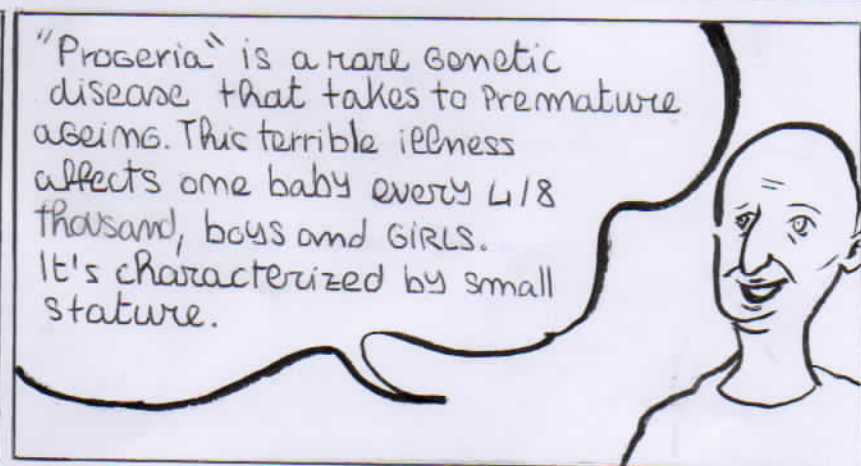 "Progeria" is a rare Genetic
disease that takes to Premmature
aGeing. This terrible illness
affects one baby every 4/8
thousand, boys and GIRLS.
It's characterized by small
stature.